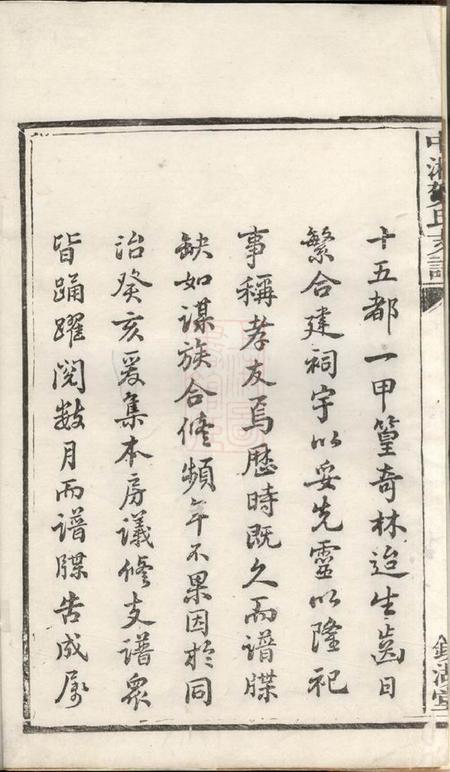 十五都一甲篁奇林迨生齒日
繁合建祠宇以妥先靈以隆祀
事稱孝友焉歷時既久而譜牒
缺如謀族合修頻年不果因於同
治癸亥爰集本房議修支譜衆
皆踴躍閱數月而譜牒告成屬